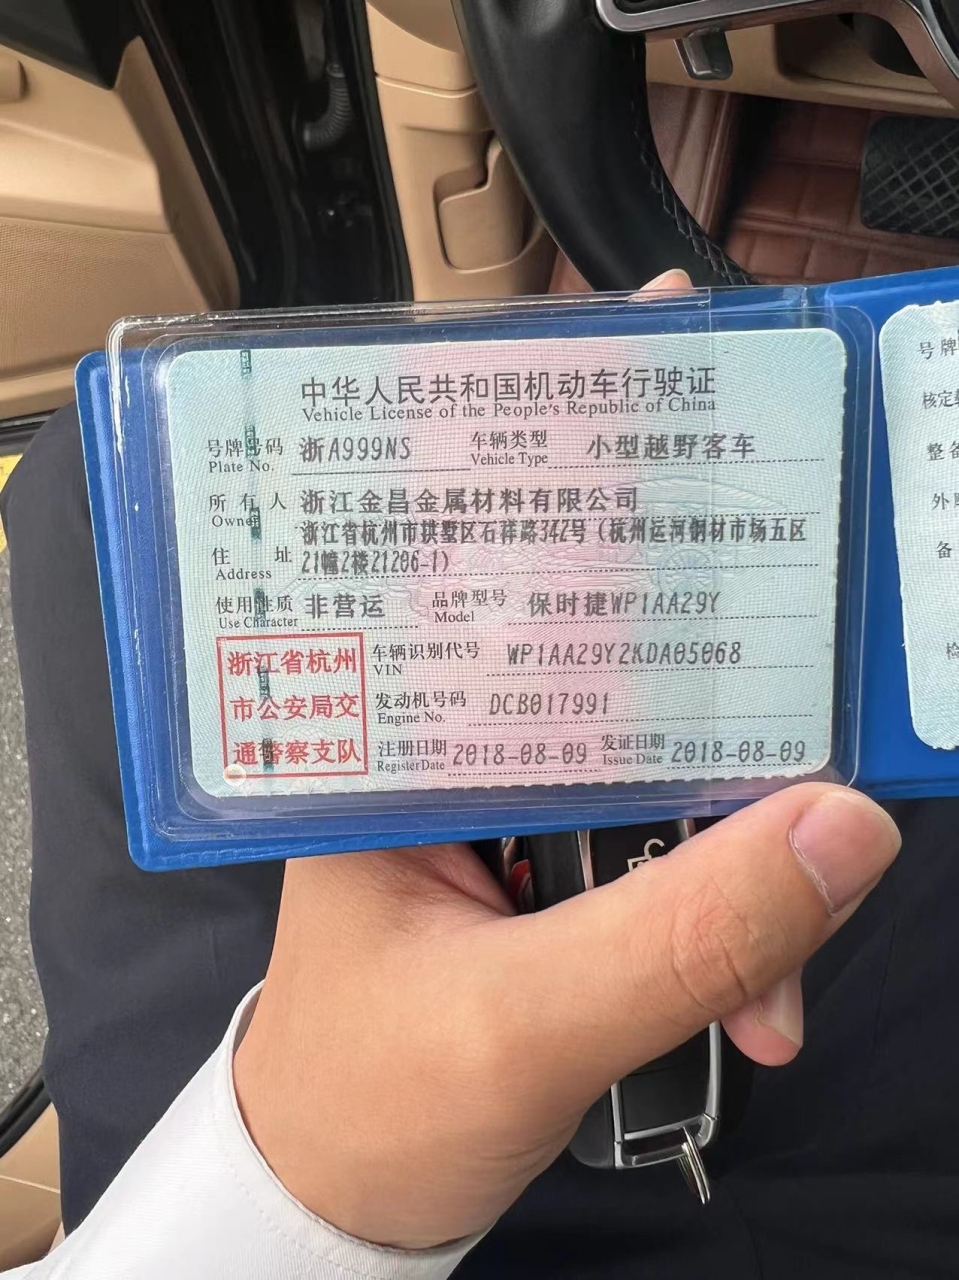 中华人民共和国机动车行驶证
Vehicle License of the People's Republic of China
号牌号码 浙A999NS 车辆类型 小型越野客车
Plate No. Vehicle Type
所有人 浙江金昌金属材料有限公司
Owner
住址 浙江省杭州市拱墅区石祥路342号（杭州运河钢材市场五区
Address 21幢2楼21206-1）
使用性质 非营运 品牌型号 保时捷WP1AA29Y
Use Character Model
浙江省杭州
市公安局交
通警察支队
车辆识别代号 WP1AA29Y2KDA05068
VIN
发动机号码 DCB017991
Engine No.
注册日期 2018-08-09 发证日期 2018-08-09
Register Date Issue Date
号牌
核定
整备
外
备
检